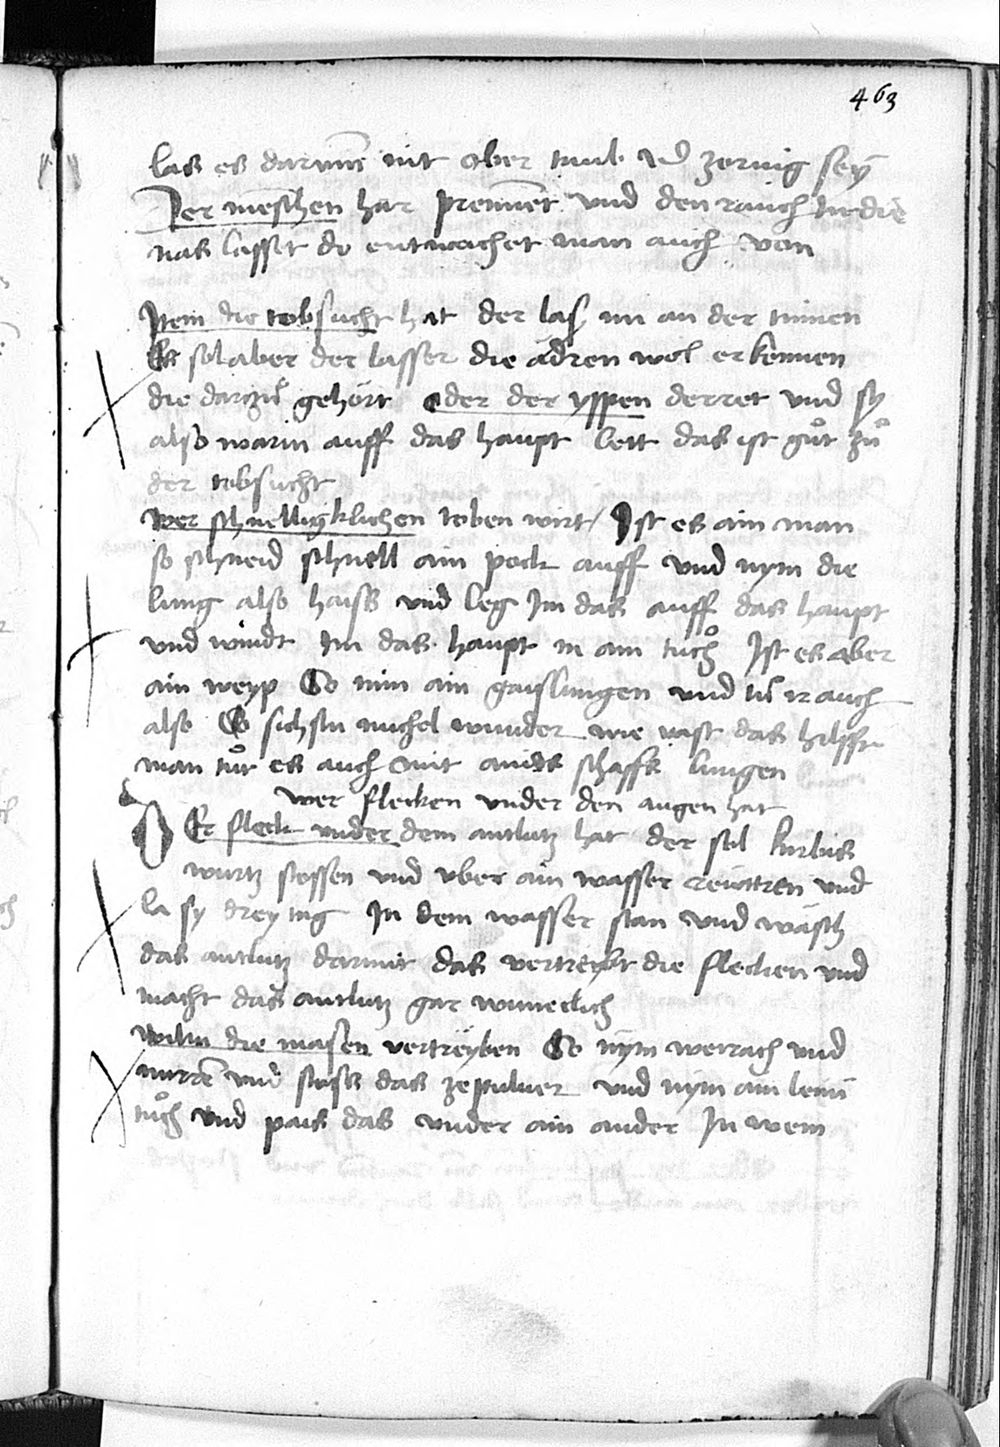 463
las es darinne nit aber taub vnd zornig sey
Der menschen har prennet vnd den rauch in die
nas lasset do entwachet man auch von
Item die tobsucht hat der las im an der tinnen
Es sol aber der lasser die adren wol erkennen
die darzů gehört oder der yppen derret vnd sy
also warm auff das haupt lett das ist gůt zů
der tobsucht
Wer schnelligklichen toben wirt / Ist es ain man
so schneid schnell ain pock auff vnd nym die
lung also haiss vnd leg Im das auff das haupt
vnd windt Im das haupt in ain tůch Ist es aber
ain weyp So nim ain gaislungen vnd tů ir auch
also So sichstu michel wunder wie vast das hilfft
man tůt es auch mit aines schaffs lungen
wer flecken vnder den augen hat
Der fleck vnder dem antlutz hat der sol kurbis
wurtz stossen vnd vber ain wasser vnd
la sy drey tag In dem wasser stan vnd wäsch
das antlutz darmit das vertreybt die flecken vnd
macht das antlutz gar wunecklich
Wiltu die masen vertreyben So nym weirach vnd
mirren vnd stoss das ze puluer vnd nym ain leini
tůch vnd pais das vnder ain ander In wein